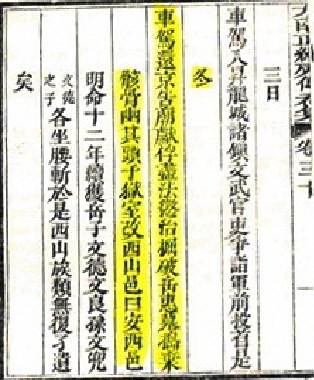 大南正編列傳初集 卷三十
三日
車駕入昇龍城諸鎮文武官吏爭詣軍前
冬
車駕還京告廟獻俘盡法懲治掘破岳惠墓搗棄
骸骨幽其頭于獄室改西山邑曰安西邑
明命十二年續獲岳子文德文良孫文兜
文德之子各坐腰斬於是西山族類無復孑遺
矣